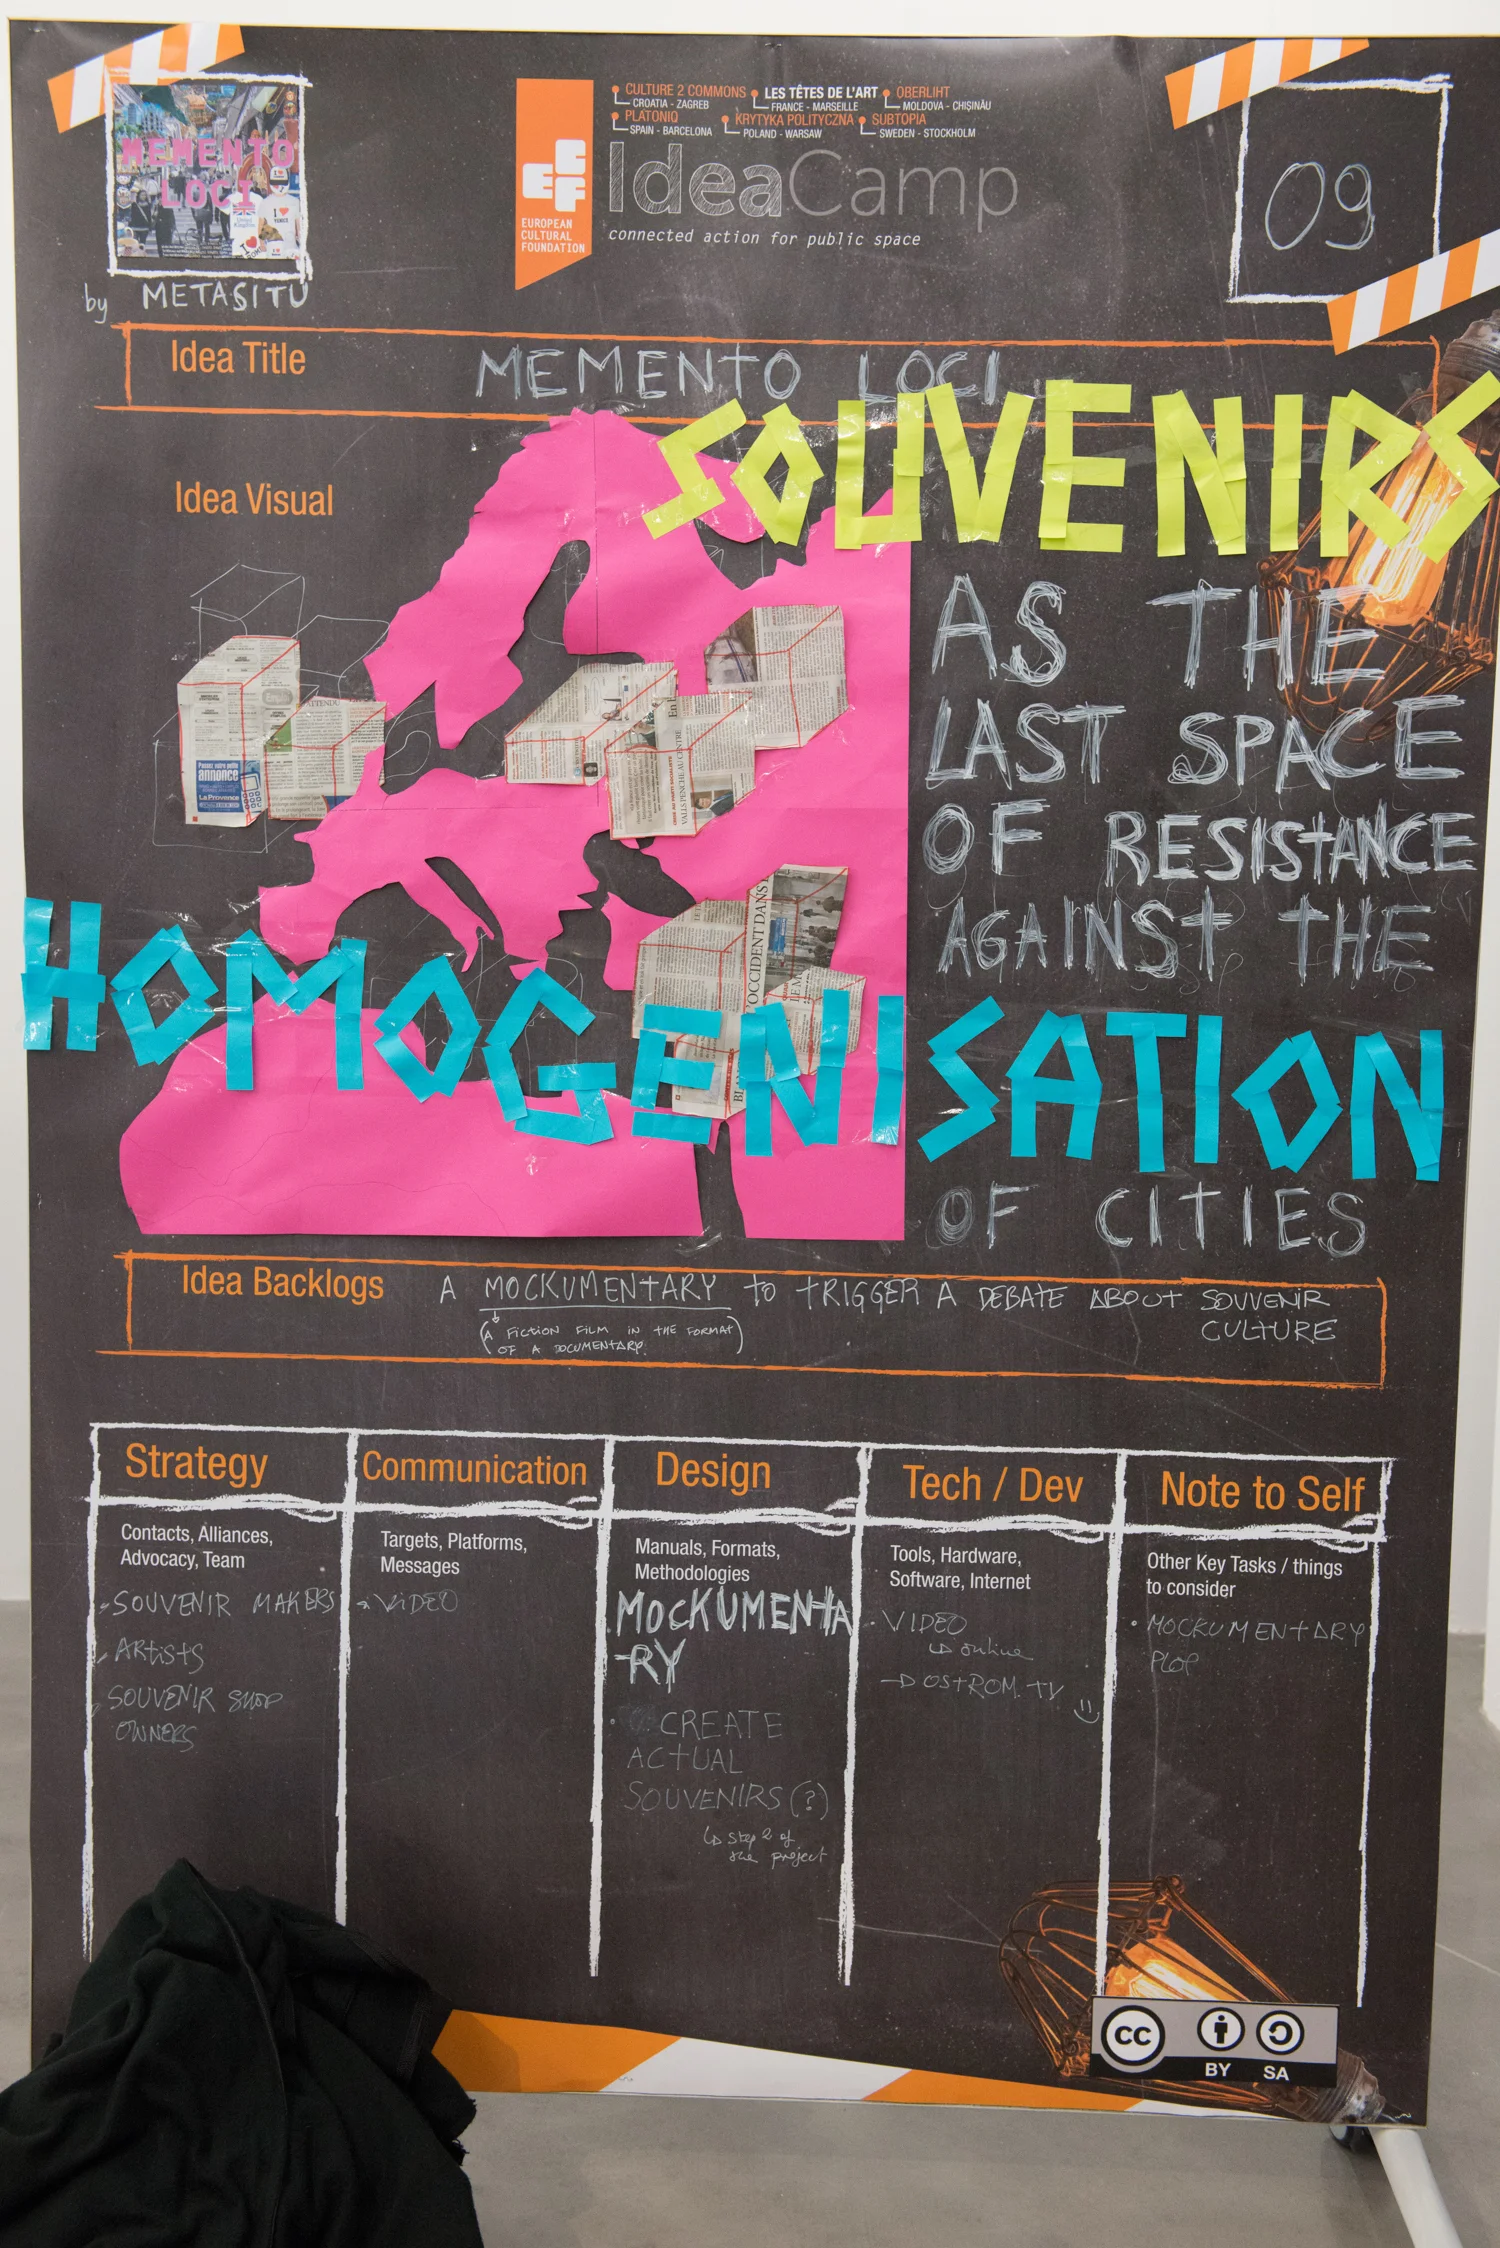 MEMENTO
LOCI
by METASITU
CULTURE 2 COMMONS
CROATIA - ZAGREB
LES TÊTES DE L'ART
FRANCE - MARSEILLE
OBERLIHT
MOLDOVA - CHIȘINĂU
PLATONIQ
SPAIN - BARCELONA
KRYTYKA POLITYCZNA
POLAND - WARSAW
SUBTOPIA
SWEDEN - STOCKHOLM
ECF
EUROPEAN
CULTURAL
FOUNDATION
IdeaCamp
connected action for public space
09
Idea Title MEMENTO LOCI
Idea Visual
SOUVENIRS
AS THE
LAST SPACE
OF RESISTANCE
AGAINST THE
HOMOGENISATION
OF CITIES
annonce
La Provence
VALLS PENCHE AU CENTRE
L'OCCIDENT DANS
Idea Backlogs A MOCKUMENTARY TO TRIGGER A DEBATE ABOUT SOUVENIR
CULTURE
(A FICTION FILM IN THE FORMAT
OF A DOCUMENTARY)
Strategy
Contacts, Alliances,
Advocacy, Team
SOUVENIR MAKERS
ARTISTS
SOUVENIR SHOP
OWNERS
Communication
Targets, Platforms,
Messages
VIDEO
Design
Manuals, Formats,
Methodologies
MOCKUMENTA
RY
CREATE
ACTUAL
SOUVENIRS (?)
step 2 of
the project
Tech / Dev
Tools, Hardware,
Software, Internet
VIDEO
online
OSTROM TV
Note to Self
Other Key Tasks / things
to consider
MOCKUMENTARY
PLOP
CC
BY SA